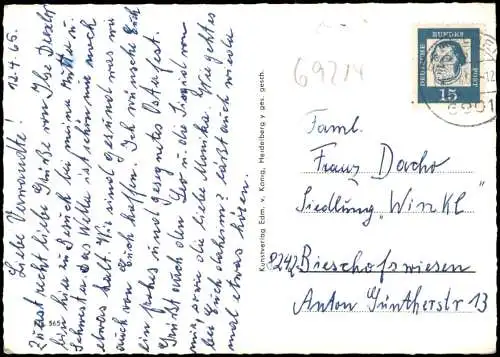 12.4.65.
Liebe Verwandte!
Zuerst recht liebe Grüße von Ihr
bin hier zu Besuch bei meiner Mutter u.
Schwester. Das Wetter ist schön nur noch
etwas kalt. Wir sind gesund was wir
auch von Euch hoffen. Ich wünsche Euch
ein frohes und gesegnetes Osterfest.
Grüßt auch den Leo u. die
sowie die liebe Monika. Wie geht es
bei Euch daheim? Laßt auch wieder
mal etwas hören.
565
Kunstverlag Edm. v. König, Heidelberg y ges. gesch.
69214
DEUTSCHE BUNDESPOST
LUTHER
15
Faml.
Franz Dacho
Siedlung "Winkl"
8242 Bischofswiesen
Anton Güntherstr 13